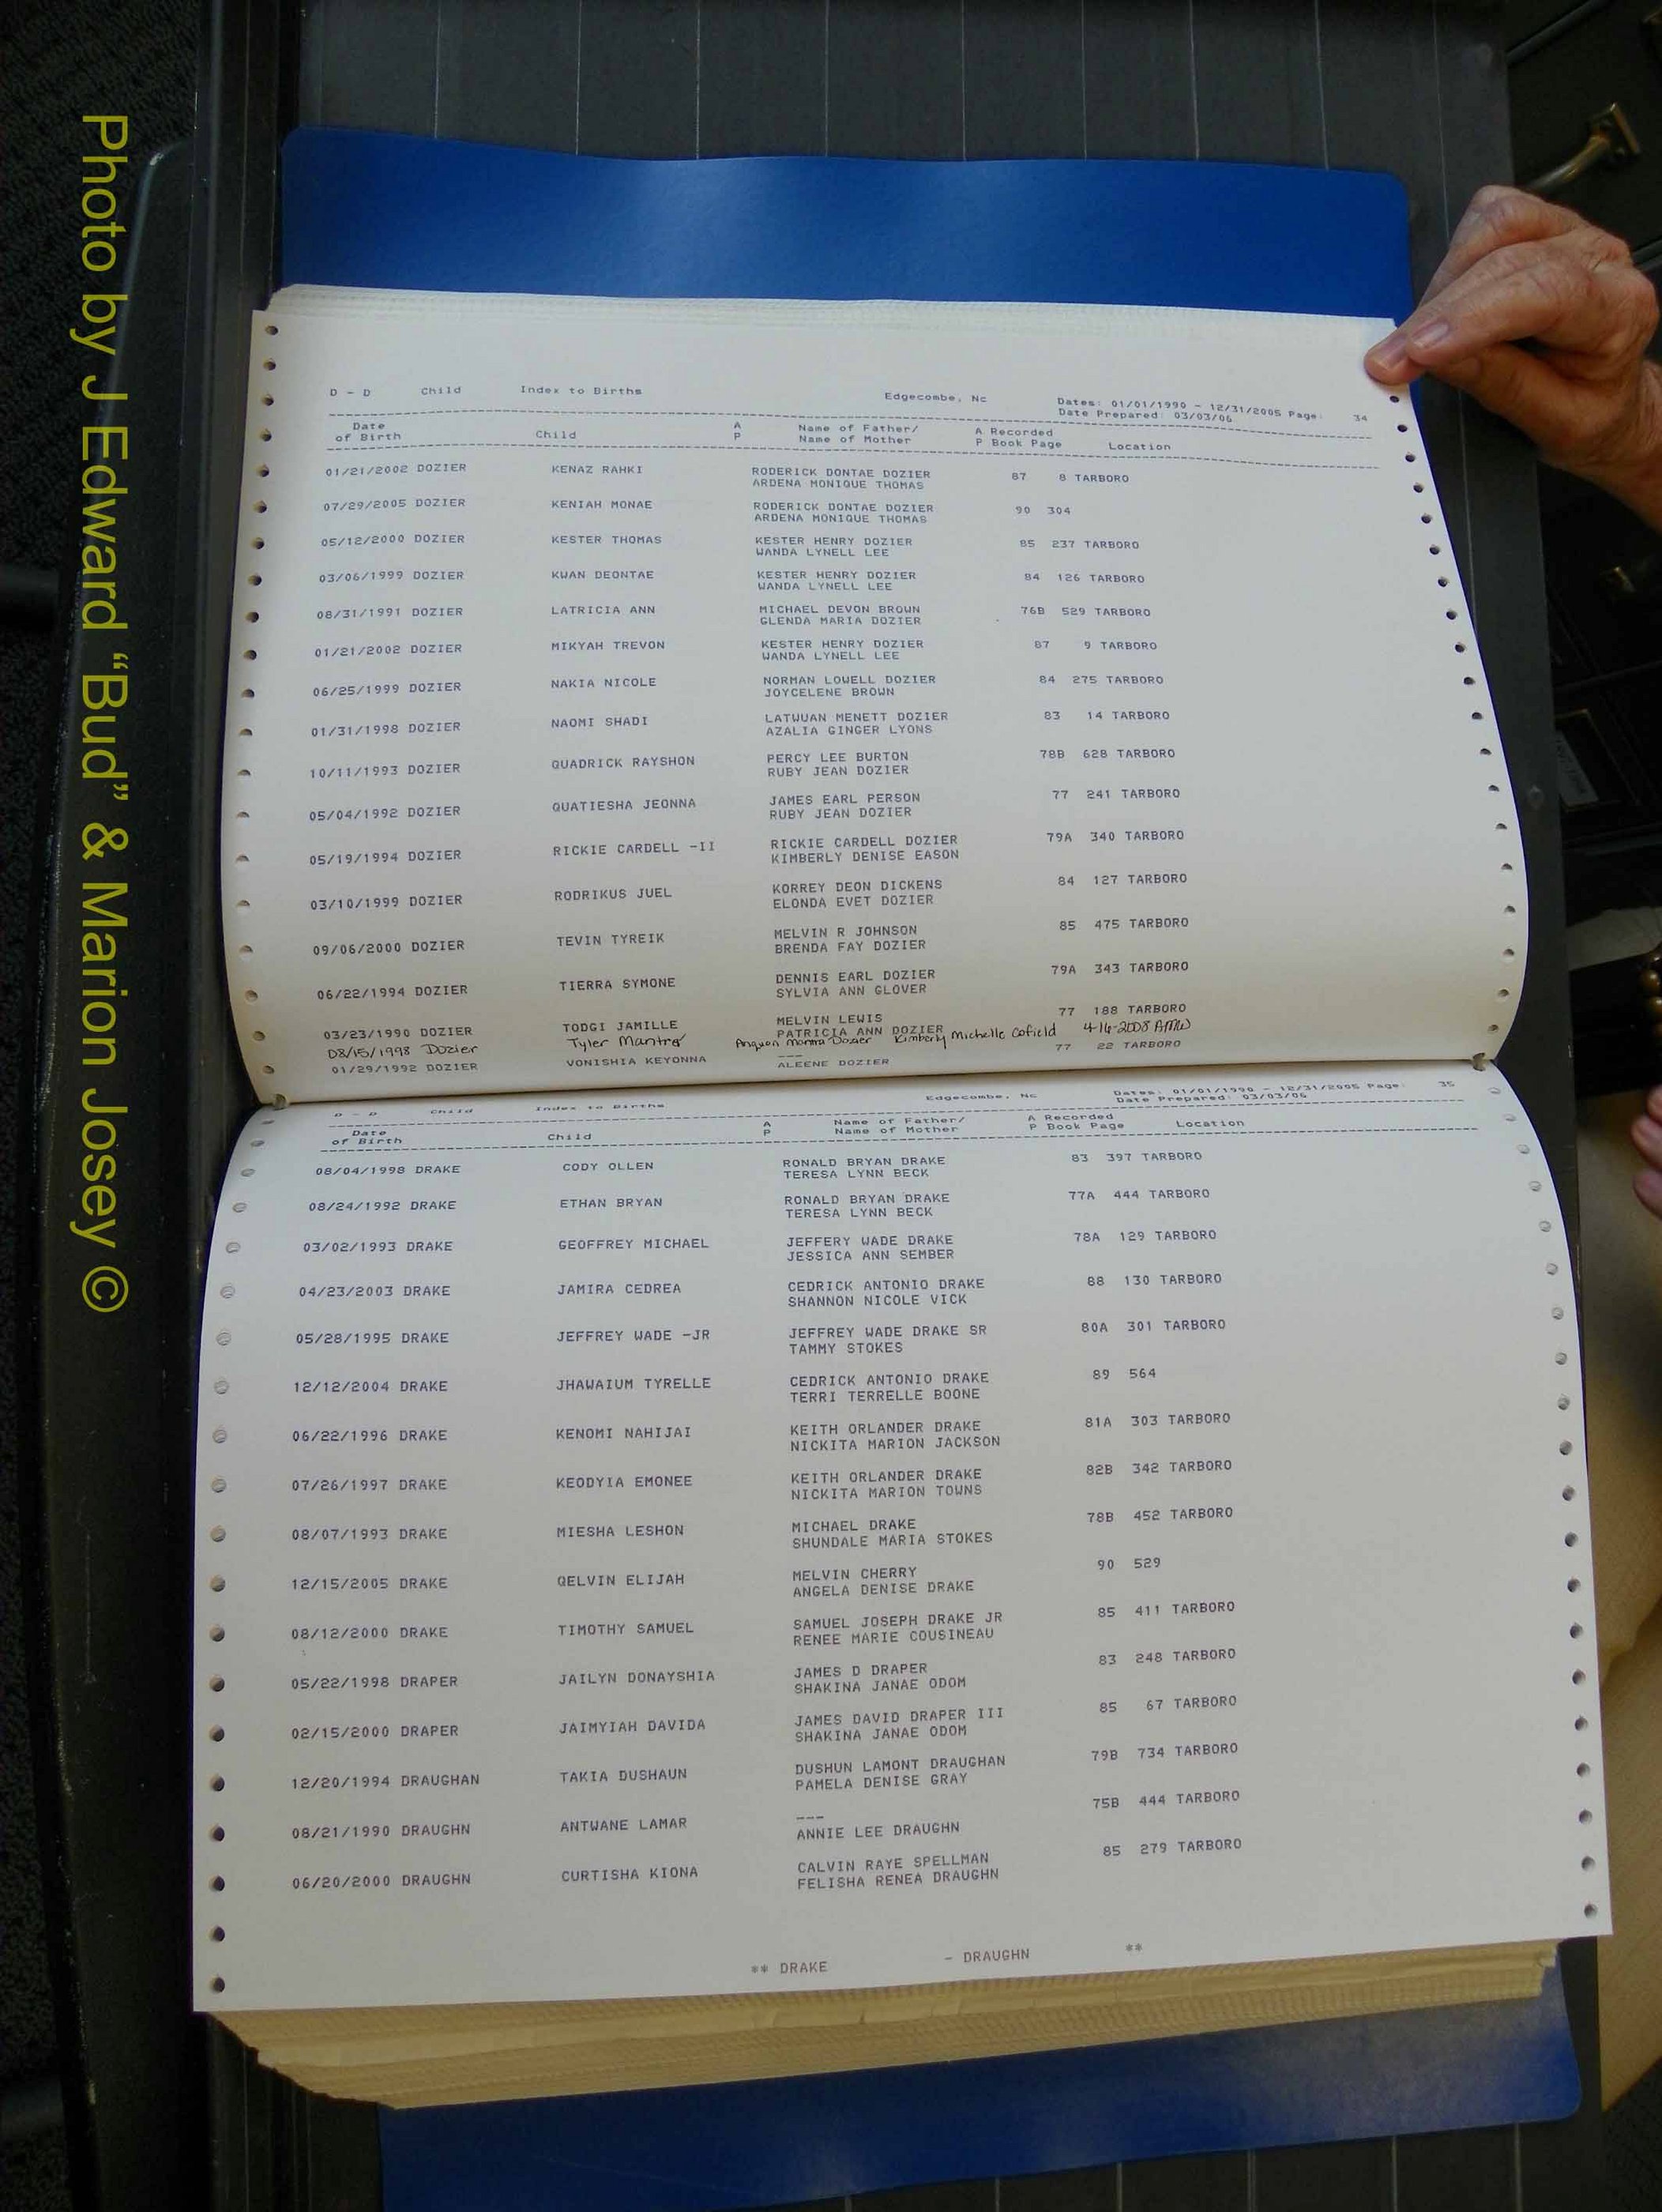 Photo by J Edward “Bud” & Marion Josey ©
D - D Child Index to Births Edgecombe, Nc Dates: 01/01/1990 - 12/31/2005 Page: 34
Date Prepared: 03/03/06
Date A Name of Father/ A Recorded
of Birth Child P Name of Mother P Book Page Location
01/21/2002 DOZIER KENAZ RAHKI RODERICK DONTAE DOZIER 87 8 TARBORO
ARDENA MONIQUE THOMAS
07/29/2005 DOZIER KENIAH MONAE RODERICK DONTAE DOZIER 90 304
ARDENA MONIQUE THOMAS
05/12/2000 DOZIER KESTER THOMAS KESTER HENRY DOZIER 85 237 TARBORO
WANDA LYNELL LEE
03/06/1999 DOZIER KWAN DEONTAE KESTER HENRY DOZIER 84 126 TARBORO
WANDA LYNELL LEE
08/31/1991 DOZIER LATRICIA ANN MICHAEL DEVON BROWN 76B 529 TARBORO
GLENDA MARIA DOZIER
01/21/2002 DOZIER MIKYAH TREVON KESTER HENRY DOZIER 87 9 TARBORO
WANDA LYNELL LEE
06/25/1999 DOZIER NAKIA NICOLE NORMAN LOWELL DOZIER 84 275 TARBORO
JOYCELENE BROWN
01/31/1998 DOZIER NAOMI SHADI LATWUAN MENETT DOZIER 83 14 TARBORO
AZALIA GINGER LYONS
10/11/1993 DOZIER QUADRICK RAYSHON PERCY LEE BURTON 78B 628 TARBORO
RUBY JEAN DOZIER
05/04/1992 DOZIER QUATIESHA JEONNA JAMES EARL PERSON 77 241 TARBORO
RUBY JEAN DOZIER
05/19/1994 DOZIER RICKIE CARDELL -II RICKIE CARDELL DOZIER 79A 340 TARBORO
KIMBERLY DENISE EASON
03/10/1999 DOZIER RODRIKUS JUEL KORREY DEON DICKENS 84 127 TARBORO
ELONDA EVET DOZIER
09/06/2000 DOZIER TEVIN TYREIK MELVIN R JOHNSON 85 475 TARBORO
BRENDA FAY DOZIER
06/22/1994 DOZIER TIERRA SYMONE DENNIS EARL DOZIER 79A 343 TARBORO
SYLVIA ANN GLOVER
03/23/1990 DOZIER TODGI JAMILLE MELVIN LEWIS 77 188 TARBORO
PATRICIA ANN DOZIER
08/15/1998 Dozier Tyler Dozier Kimberly Michelle Cofield 4-16-2008
01/29/1992 DOZIER VONISHIA KEYONNA --- 77 22 TARBORO
ALEENE DOZIER
D - D Child Index to Births Edgecombe, Nc Dates: 01/01/1990 - 12/31/2005 Page: 35
Date Prepared: 03/03/06
Date A Name of Father/ A Recorded
of Birth Child P Name of Mother P Book Page Location
08/04/1998 DRAKE CODY OLLEN RONALD BRYAN DRAKE 83 397 TARBORO
TERESA LYNN BECK
08/24/1992 DRAKE ETHAN BRYAN RONALD BRYAN DRAKE 77A 444 TARBORO
TERESA LYNN BECK
03/02/1993 DRAKE GEOFFREY MICHAEL JEFFERY WADE DRAKE 78A 129 TARBORO
JESSICA ANN SEMBER
04/23/2003 DRAKE JAMIRA CEDREA CEDRICK ANTONIO DRAKE 88 130 TARBORO
SHANNON NICOLE VICK
05/28/1995 DRAKE JEFFREY WADE -JR JEFFREY WADE DRAKE SR 80A 301 TARBORO
TAMMY STOKES
12/12/2004 DRAKE JHAWAIUM TYRELLE CEDRICK ANTONIO DRAKE 89 564
TERRI TERRELLE BOONE
06/22/1996 DRAKE KENOMI NAHIJAI KEITH ORLANDER DRAKE 81A 303 TARBORO
NICKITA MARION JACKSON
07/26/1997 DRAKE KEODYIA EMONEE KEITH ORLANDER DRAKE 82B 342 TARBORO
NICKITA MARION TOWNS
08/07/1993 DRAKE MIESHA LESHON MICHAEL DRAKE 78B 452 TARBORO
SHUNDALE MARIA STOKES
12/15/2005 DRAKE QELVIN ELIJAH MELVIN CHERRY 90 529
ANGELA DENISE DRAKE
08/12/2000 DRAKE TIMOTHY SAMUEL SAMUEL JOSEPH DRAKE JR 85 411 TARBORO
RENEE MARIE COUSINEAU
05/22/1998 DRAPER JAILYN DONAYSHIA JAMES D DRAPER 83 248 TARBORO
SHAKINA JANAE ODOM
02/15/2000 DRAPER JAIMYIAH DAVIDA JAMES DAVID DRAPER III 85 67 TARBORO
SHAKINA JANAE ODOM
12/20/1994 DRAUGHAN TAKIA DUSHAUN DUSHUN LAMONT DRAUGHAN 79B 734 TARBORO
PAMELA DENISE GRAY
08/21/1990 DRAUGHN ANTWANE LAMAR --- 75B 444 TARBORO
ANNIE LEE DRAUGHN
06/20/2000 DRAUGHN CURTISHA KIONA CALVIN RAYE SPELLMAN 85 279 TARBORO
FELISHA RENEA DRAUGHN
** DRAKE - DRAUGHN **